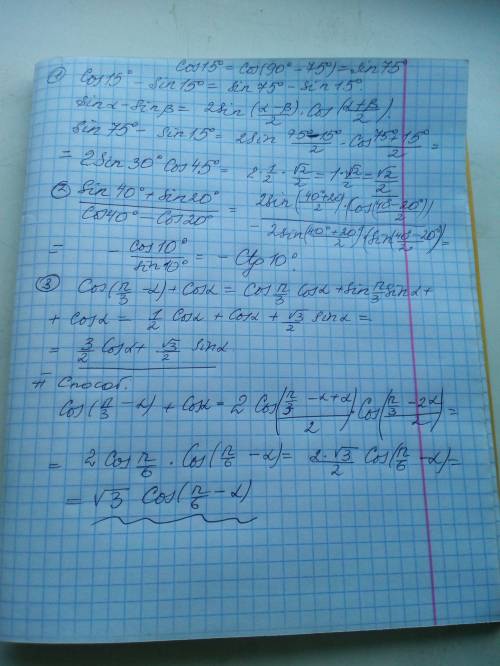 cos15° = cos(90° - 75°) = sin75°
① cos15° - sin15° = sin75° - sin15°.
sinα - sinβ = 2sin (α-β)/2 · cos (α+β)/2.
sin75° - sin15° = 2sin (75°-15°)/2 · cos (75°+15°)/2 =
= 2sin30° cos45° = 2·1/2·√2/2 = 1·√2/2 = √2/2
② (sin40° + sin20°)/(cos40° - cos20°) = 2sin((40°+20)/2)·(cos(40°-20°)/2)/-2sin((40°+20)/2)(sin(40°-20°)/2) =
= - cos10°/sin10° = - ctg10°.
③ cos(π/3 - α) + cosα = cos π/3 cosα + sin π/3 sinα +
+ cosα = 1/2 cosα + cosα + √3/2 sinα =
= 3/2 cosα + √3/2 sinα
II способ.
cos(π/3 - α) + cosα = 2 cos((π/3 - α + α)/2) · cos((π/3 - 2α)/2) =
= 2cos π/6 · cos(π/6 - α) = 2·√3/2 cos(π/6 - α) =
= √3 cos(π/6 - α)